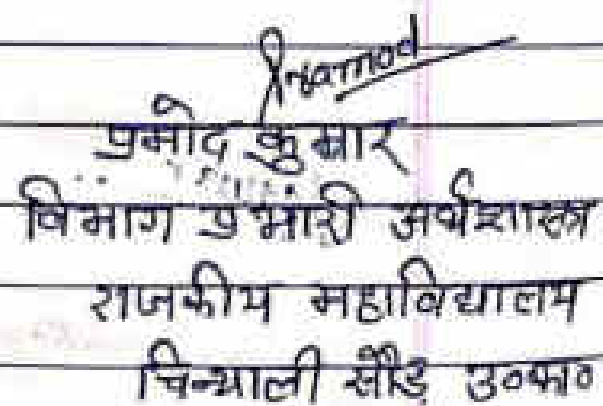 Pramod
प्रमोद कुमार
विभाग प्रभारी अर्थशास्त्र
राजकीय महाविद्यालय
चिन्याली सौड़ उ०का०